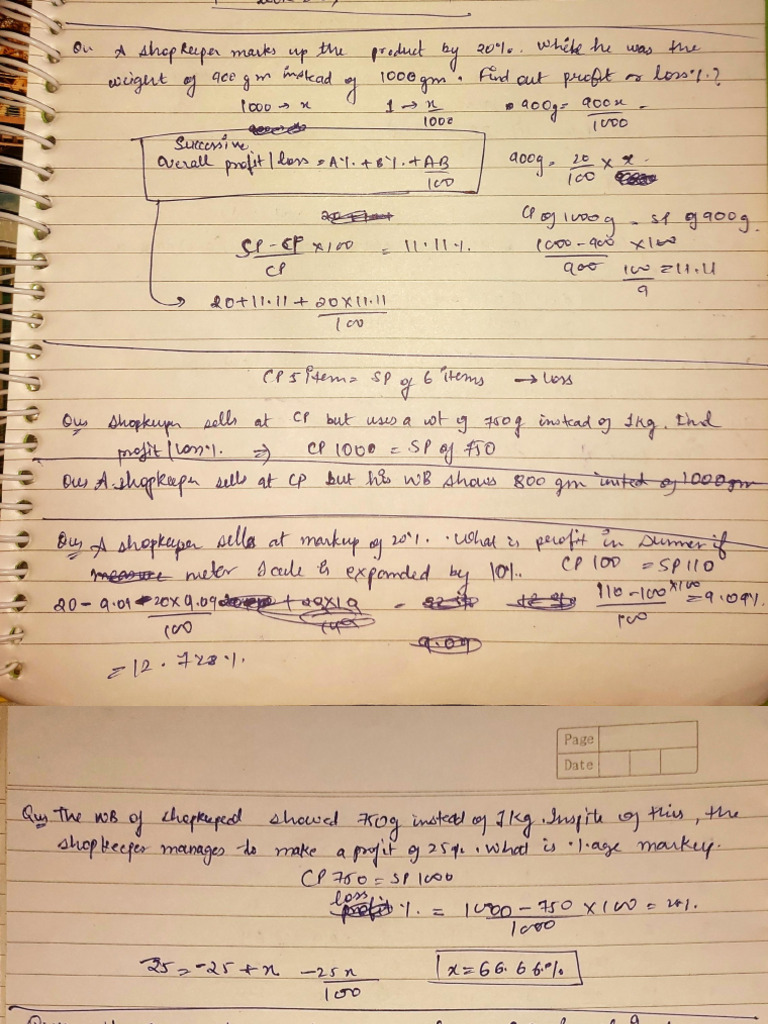 Qu A shopkeeper marks up the product by 20%. While he was the
weight of 900 gm instead of 1000gm. Find out profit or loss%?
1000 → x 1 → x/1000 900g = 900x/1000
Successive
Overall profit/loss = A% + B% + AB/100
900g = 20/100 × x
CP of 1000g = SP of 900g
SP-CP/CP × 100 = 11.11%
1000-900/900 × 100
100/9 = 11.11
20+11.11 + 20×11.11/100
CP 5 item = SP of 6 items → loss
Ques Shopkeeper sells at CP but uses a wt of 750g instead of 1kg. Find
profit/loss%. ⇒ CP 1000 = SP of 750
Ques A shopkeeper sells at CP but his WB shows 800 gm insted of 1000gm
Ques A shopkeeper sells at markup of 20%. What is perofit in summer if
meter scale is expanded by 10%. CP 100 = SP 110
20 - 9.09 - 20×9.09/100
110-100/100 ×100 = 9.09%
9.09
= 12.728%
Page
Date
Ques The WB of shopkeeped showed 750g instead of 1kg. Inspite of this, the
shopkeeper manages to make a profit of 25%. What is %age markup.
CP 750 = SP 1000
loss
% = 1000-750/1000 × 100 = 25%
25 = -25 + x -25x/100 x = 66.66%